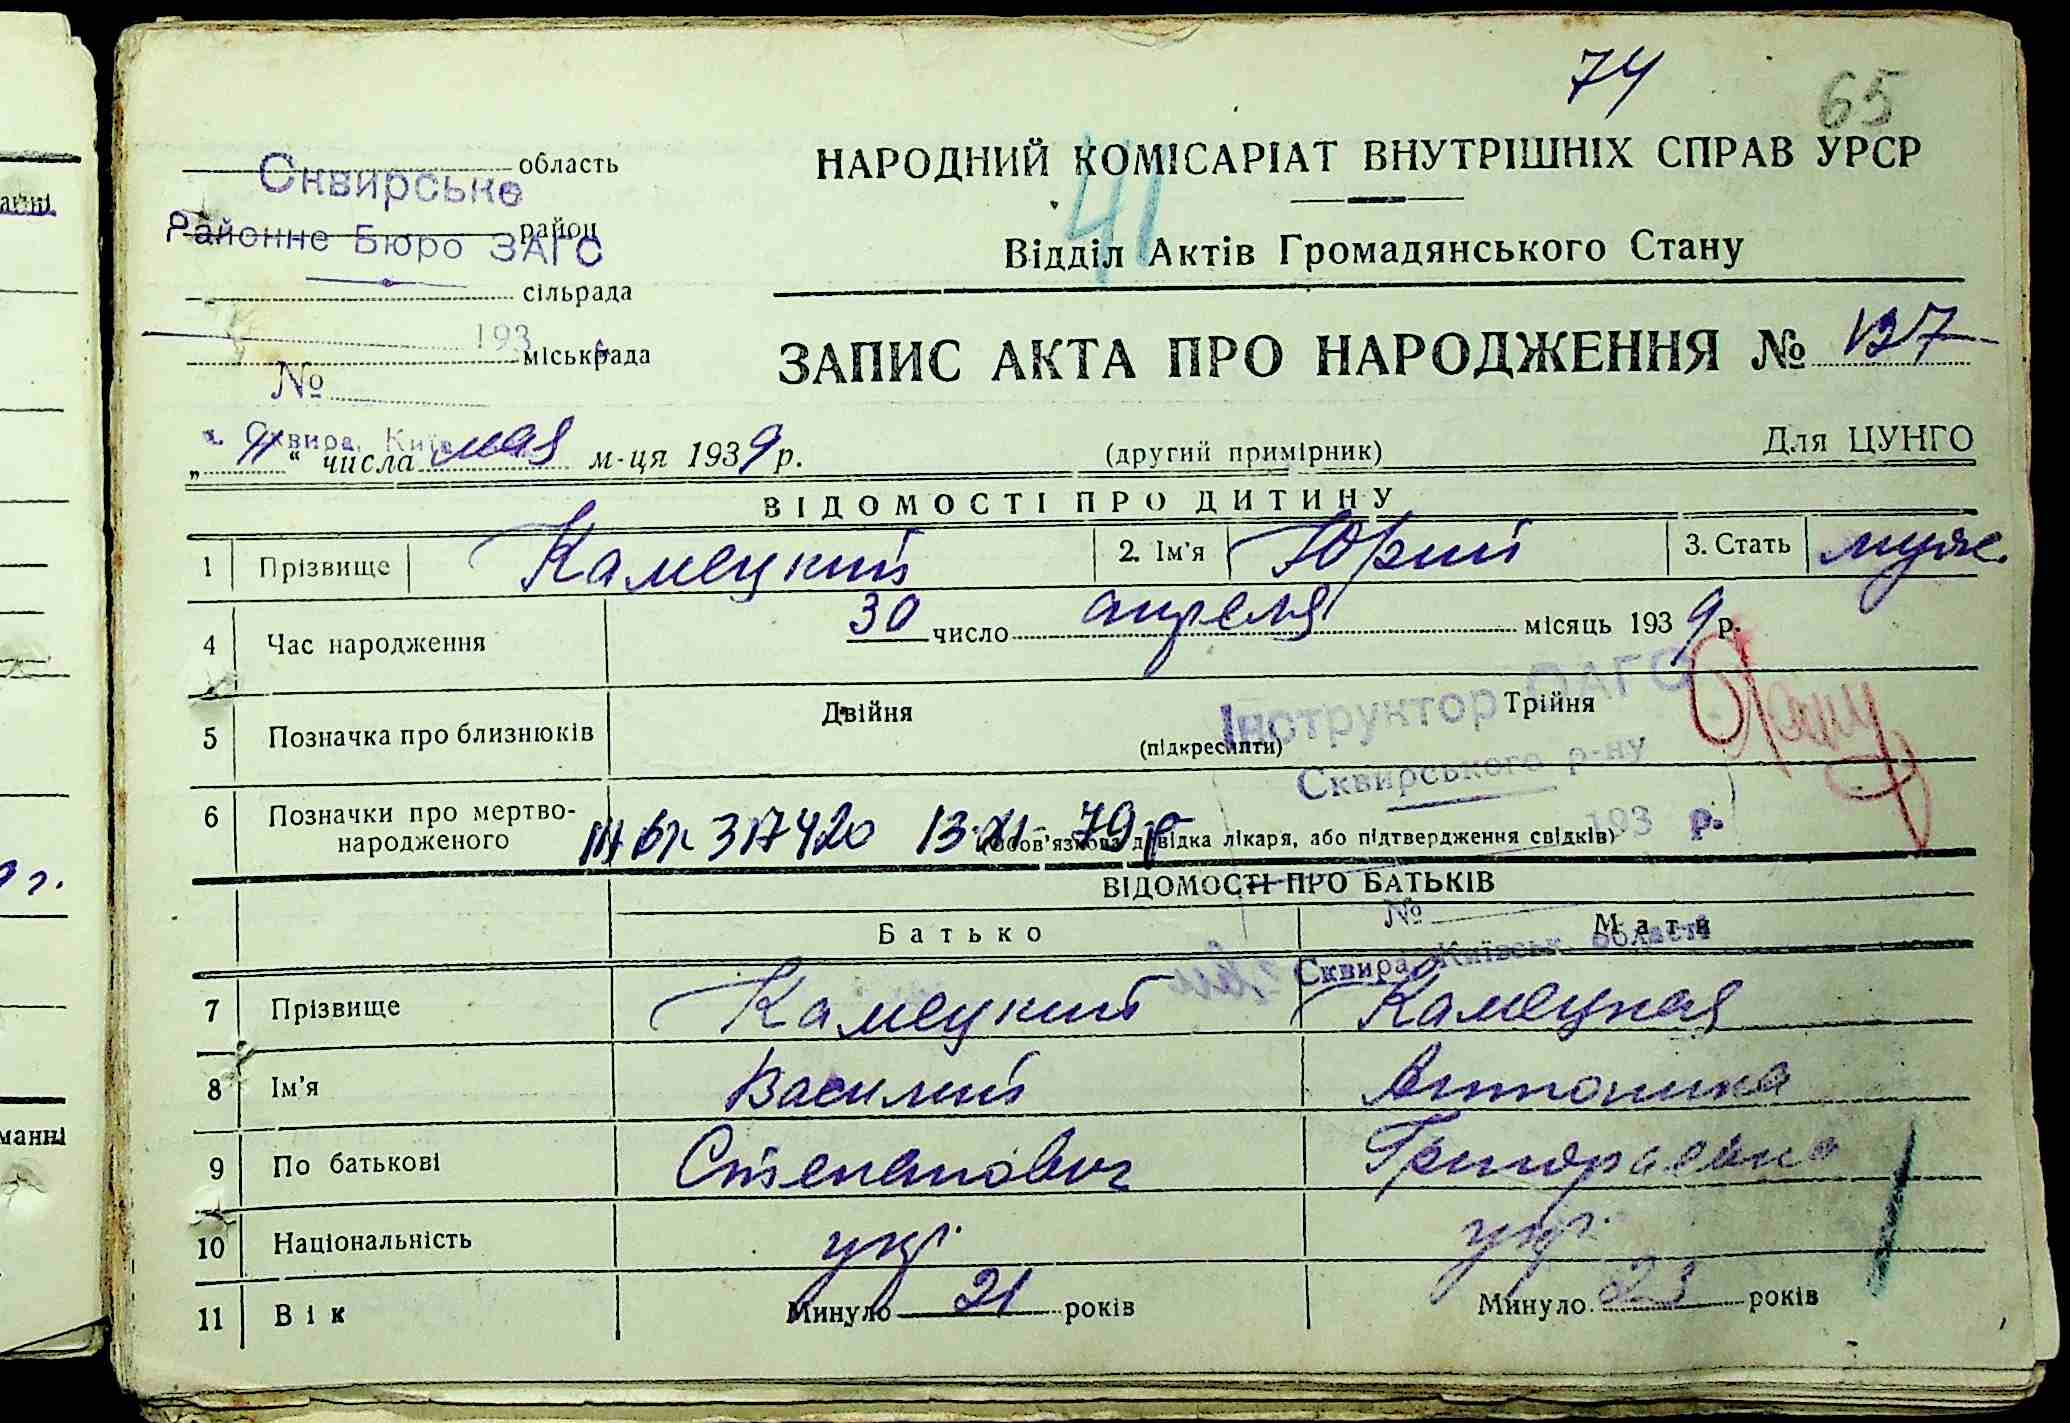 74
65
область
НАРОДНИЙ КОМІСАРІАТ ВНУТРІШНІХ СПРАВ УРСР
Сквирське
41
район
Районне Бюро ЗАГС
Відділ Актів Громадянського Стану
сільрада
193
міськрада
ЗАПИС АКТА ПРО НАРОДЖЕННЯ № 137
№
м. Сквира, Київ
„11“ числа мая м-ця 1939 р.
(другий примірник)
Для ЦУНГО
ВІДОМОСТІ ПРО ДИТИНУ
1 Прізвище Камецкий 2. Ім'я Юрий 3. Стать муж.
4 Час народження 30 число апреля місяць 1939 р.
Інструктор ОАГС
5 Позначка про близнюків Двійня Трійня
(підкреслити)
Сквирського р-ну
6 Позначки про мертво-
народженого
317420 13 XI 79 р
193 р.
(обов'язкова довідка лікаря, або підтвердження свідків)
ВІДОМОСТІ ПРО БАТЬКІВ
№
Батько Мати
Сквира, Київськ. області
7 Прізвище Камецкий Камецкая
8 Ім'я Василий Антонина
9 По батькові Степанович Григорьевна
10 Національність укр. укр.
11 Вік Минуло 21 років Минуло 23 років